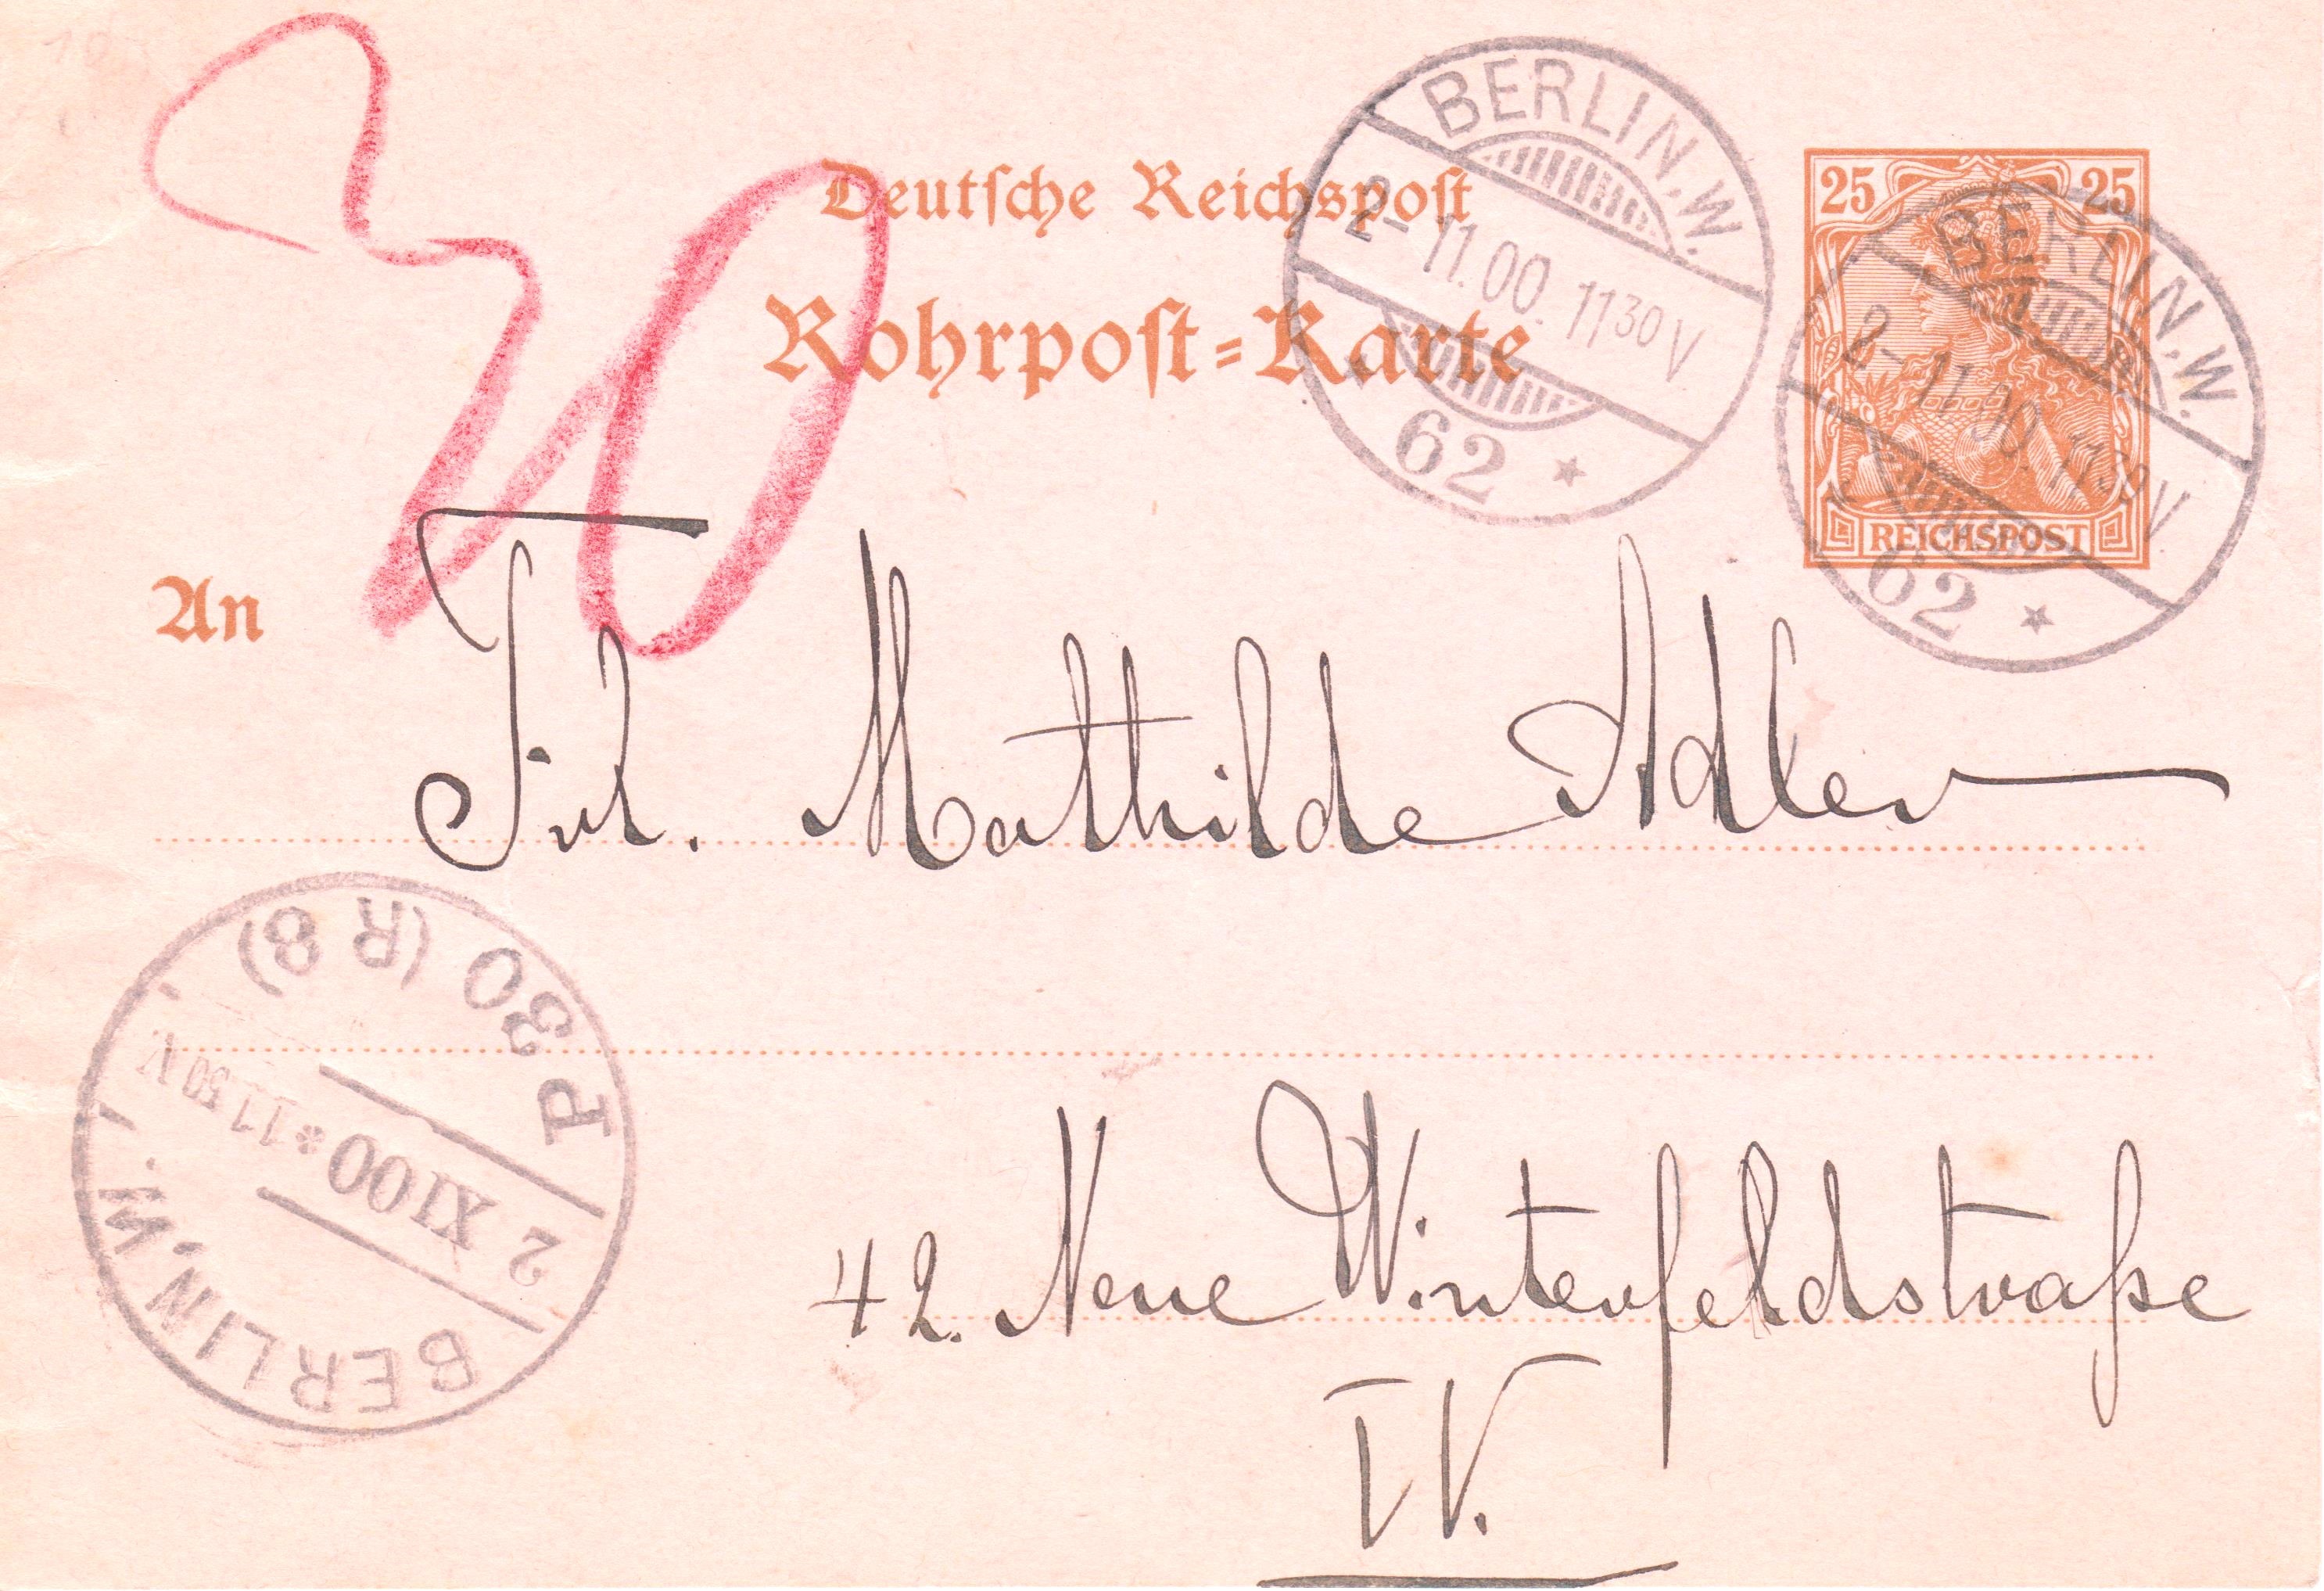 Deutsche Reichspost
Rohrpost=Karte
25 25
REICHSPOST
BERLIN.W.
2-11.00. 11 30 V
62 *
BERLIN.W.
2-11.00. 11 30 V
62 *
30
An
Frl. Mathilde Adler
P 30 (R 8)
2 XI 00 * 11 50 V.
BERLIN, W.
42. Neue Winterfeldstraße
IV.